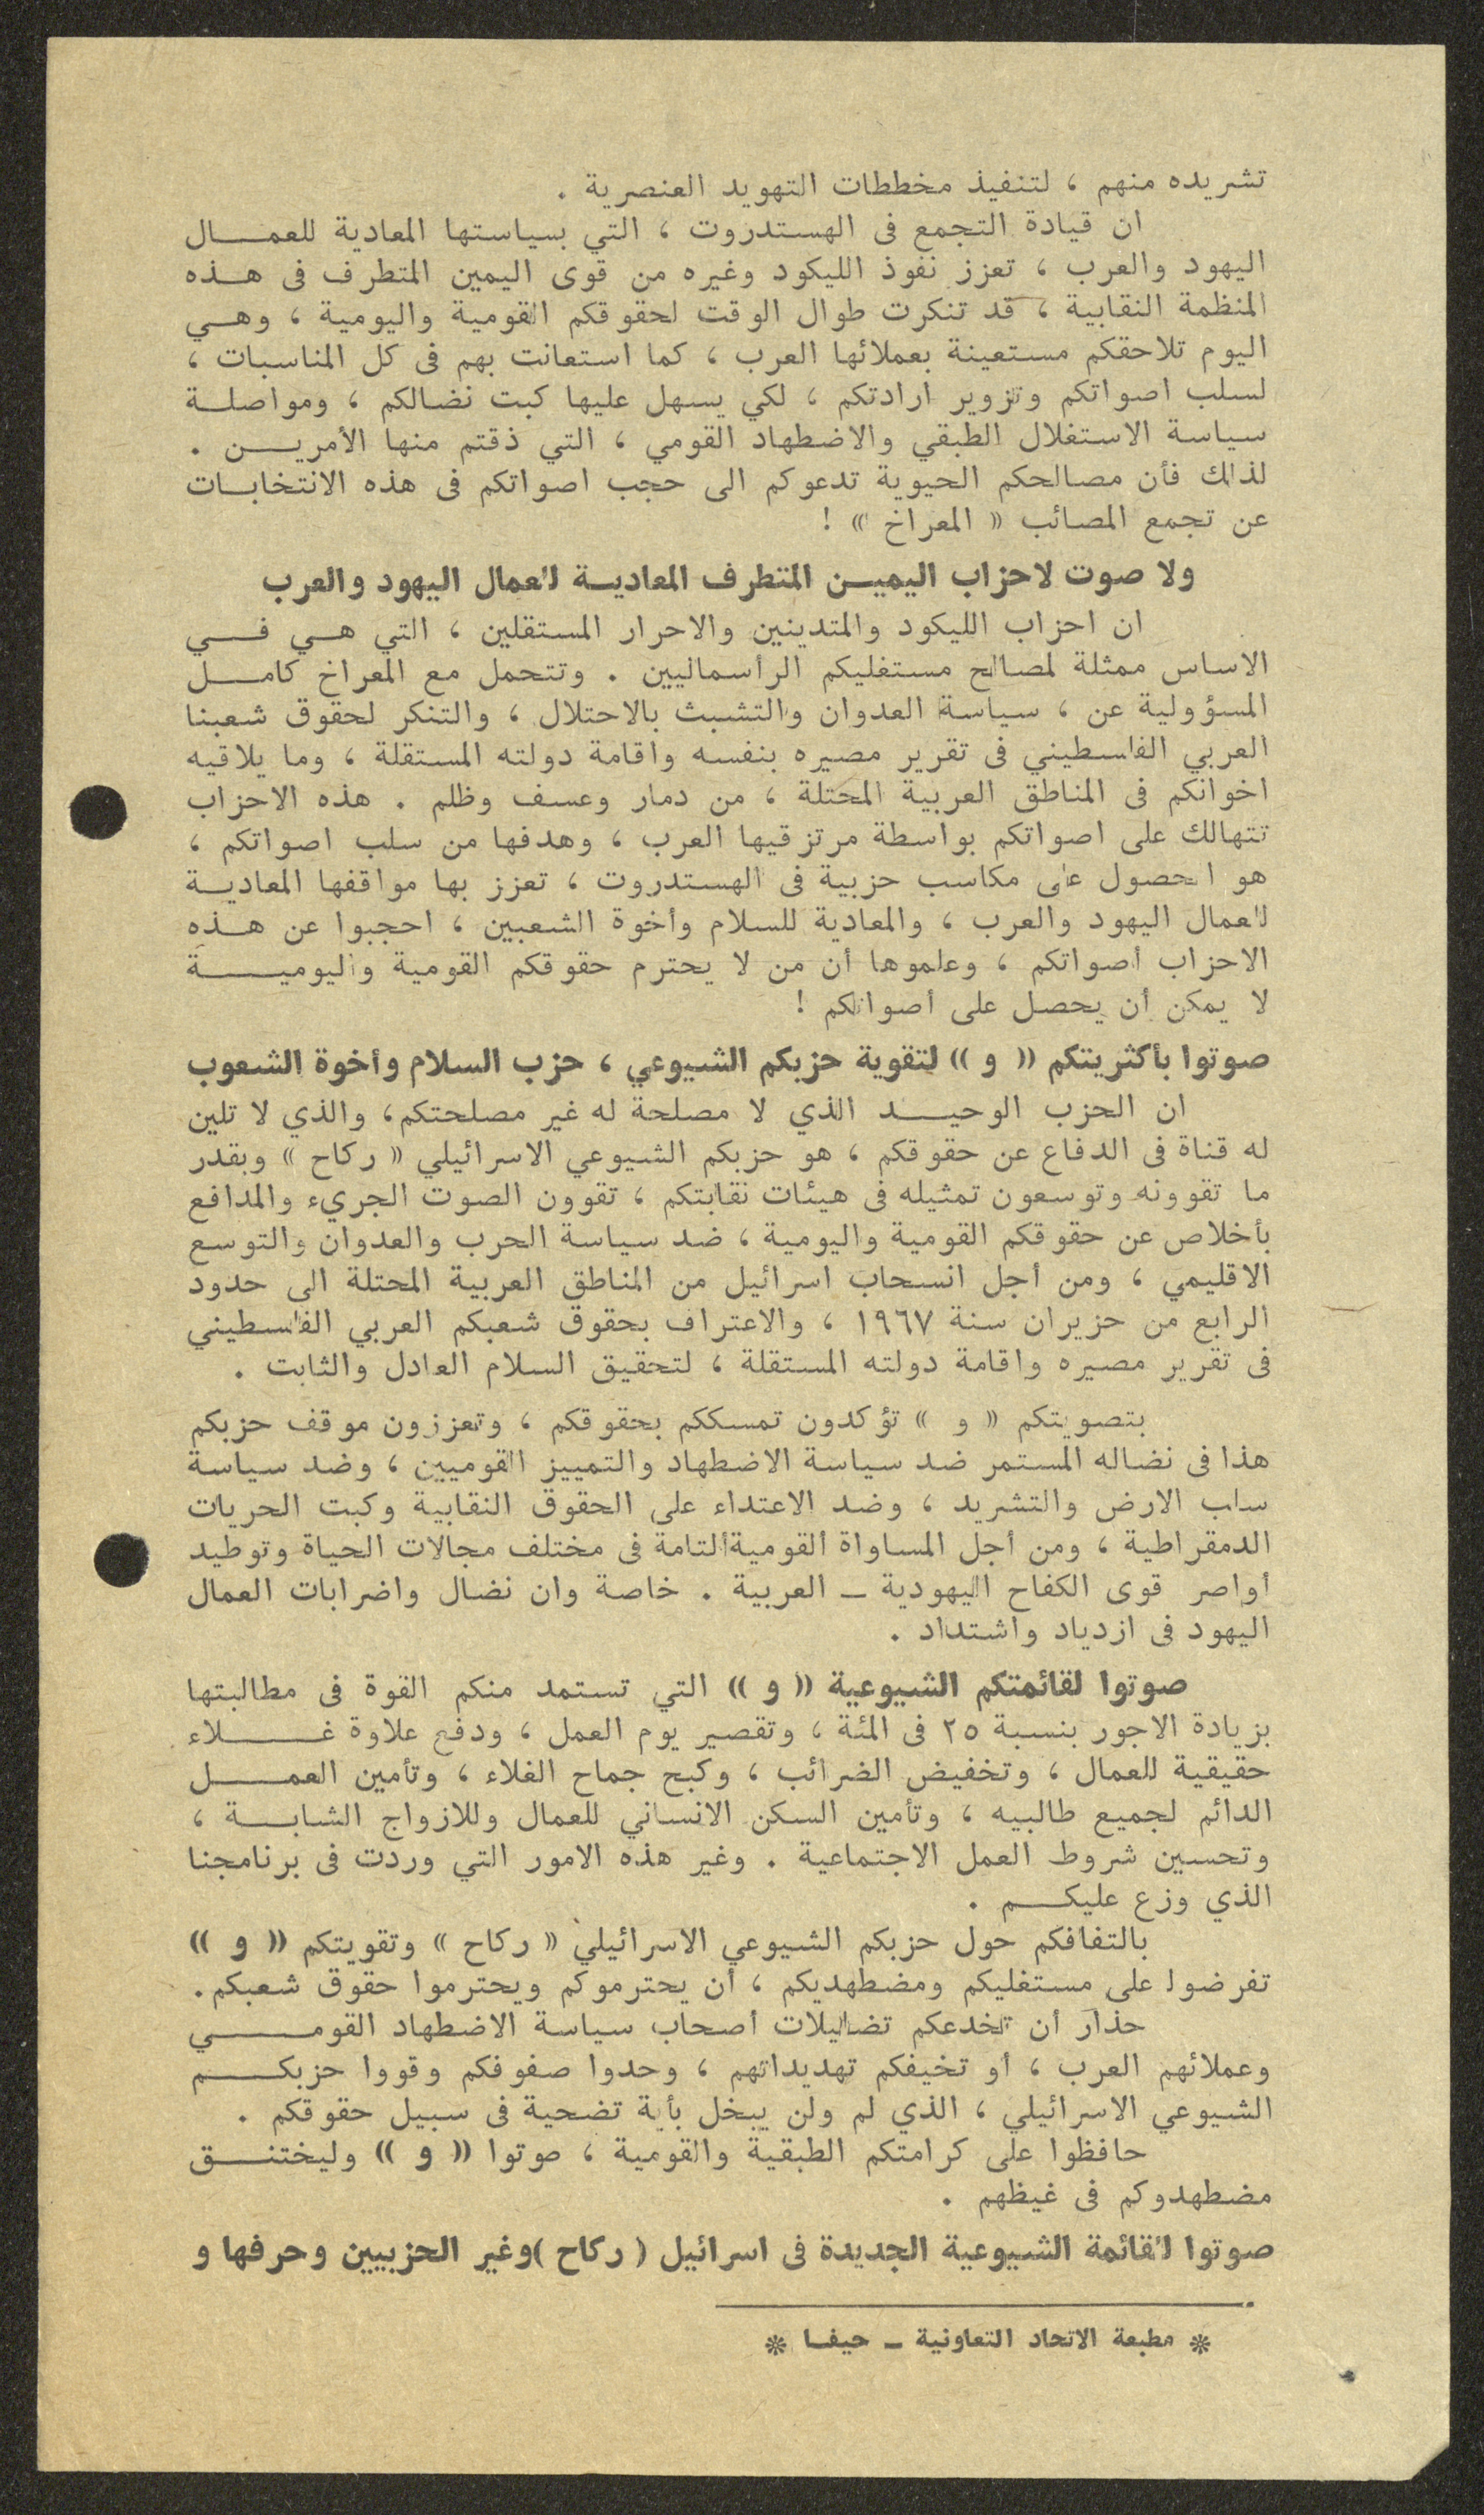 تشريده منهم ، لتنفيذ مخططات التهويد العنصرية .
ان قيادة التجمع فى الهستدروت ، التي بسياستها المعادية للعمـــال
اليهود والعرب ، تعزز نفوذ الليكود وغيره من قوى اليمين المتطرف فى هــذه
المنظمة النقابية ، قد تنكرت طوال الوقت لحقوقكم القومية واليومية ، وهــي
اليوم تلاحقكم مستعينة بعملائها العرب ، كما استعانت بهم فى كل المناسبات ،
لسلب اصواتكم وتزوير ارادتكم ، لكي يسهل عليها كبت نضالكم ، ومواصلــة
سياسة الاستغلال الطبقي والاضطهاد القومي ، التي ذقتم منها الأمريـــن .
لذلك فأن مصالحكم الحيوية تدعوكم الى حجب اصواتكم فى هذه الانتخابــات
عن تجمع المصائب « المعراخ » !
ولا صوت لاحزاب اليميــن المتطرف المعاديــة لعمال اليهود والعرب
ان احزاب الليكود والمتدينين والاحرار المستقلين ، التي هــي فــــي
الاساس ممثلة لمصالح مستغليكم الرأسماليين . وتتحمل مع المعراخ كامــــل
المسؤولية عن ، سياسة العدوان والتشبث بالاحتلال ، والتنكر لحقوق شعبنا
العربي الفلسطيني فى تقرير مصيره بنفسه واقامة دولته المستقلة ، وما يلاقيه
اخوانكم فى المناطق العربية المحتلة ، من دمار وعسف وظلم . هذه الاحزاب
تتهالك على اصواتكم بواسطة مرتزقيها العرب ، وهدفها من سلب اصواتكم ،
هو الحصول على مكاسب حزبية فى الهستدروت ، تعزز بها مواقفها المعاديــة
لعمال اليهود والعرب ، والمعادية للسلام وأخوة الشعبين ، احجبوا عن هــذه
الاحزاب أصواتكم ، وعلموها أن من لا يحترم حقوقكم القومية واليوميـــــة
لا يمكن أن يحصل على أصواتكم !
صوتوا بأكثريتكم « و » لتقوية حزبكم الشيوعي ، حزب السلام وأخوة الشعوب
ان الحزب الوحيـــد الذي لا مصلحة له غير مصلحتكم، والذي لا تلين
له قناة فى الدفاع عن حقوقكم ، هو حزبكم الشيوعي الاسرائيلي « ركاح » وبقدر
ما تقوونه وتوسعون تمثيله فى هيئات نقابتكم ، تقوون الصوت الجريء والمدافع
بأخلاص عن حقوقكم القومية واليومية ، ضد سياسة الحرب والعدوان والتوسع
الاقليمي ، ومن أجل انسحاب اسرائيل من المناطق العربية المحتلة الى حدود
الرابع من حزيران سنة ١٩٦٧ ، والاعتراف بحقوق شعبكم العربي الفلسطيني
فى تقرير مصيره واقامة دولته المستقلة ، لتحقيق السلام العادل والثابت .
بتصويتكم « و » تؤكدون تمسككم بحقوقكم ، وتعززون موقف حزبكم
هذا فى نضاله المستمر ضد سياسة الاضطهاد والتمييز القوميين ، وضد سياسة
سلب الارض والتشريد ، وضد الاعتداء على الحقوق النقابية وكبت الحريات
الدمقراطية ، ومن أجل المساواة القومية التامة فى مختلف مجالات الحياة وتوطيد
أواصر قوى الكفاح اليهودية ــ العربية . خاصة وان نضال واضرابات العمال
اليهود فى ازدياد واشتداد .
صوتوا لقائمتكم الشيوعية « و » التي تستمد منكم القوة فى مطالبتها
بزيادة الاجور بنسبة ٢٥ فى المئة ، وتقصير يوم العمل ، ودفع علاوة غــــلاء
حقيقية للعمال ، وتخفيض الضرائب ، وكبح جماح الغلاء ، وتأمين العمــــل
الدائم لجميع طالبيه ، وتأمين السكن الانساني للعمال وللازواج الشابــــة ،
وتحسين شروط العمل الاجتماعية . وغير هذه الامور التي وردت فى برنامجنا
الذي وزع عليكـــم .
بالتفافكم حول حزبكم الشيوعي الاسرائيلي « ركاح » وتقويتكم « و »
تفرضوا على مستغليكم ومضطهديكم ، أن يحترموكم ويحترموا حقوق شعبكم.
حذار أن تخدعكم تضاليلات أصحاب سياسة الاضطهاد القومـــــي
وعملائهم العرب ، أو تخيفكم تهديداتهم ، وحدوا صفوفكم وقووا حزبكــــم
الشيوعي الاسرائيلي ، الذي لم ولن يبخل بأية تضحية فى سبيل حقوقكم .
حافظوا على كرامتكم الطبقية والقومية ، صوتوا « و » وليختنــــق
مضطهدوكم فى غيظهم .
صوتوا لقائمة الشيوعية الجديدة فى اسرائيل ( ركاح )وغير الحزبيين وحرفها و
* مطبعة الاتحاد التعاونية ــ حيفــا *